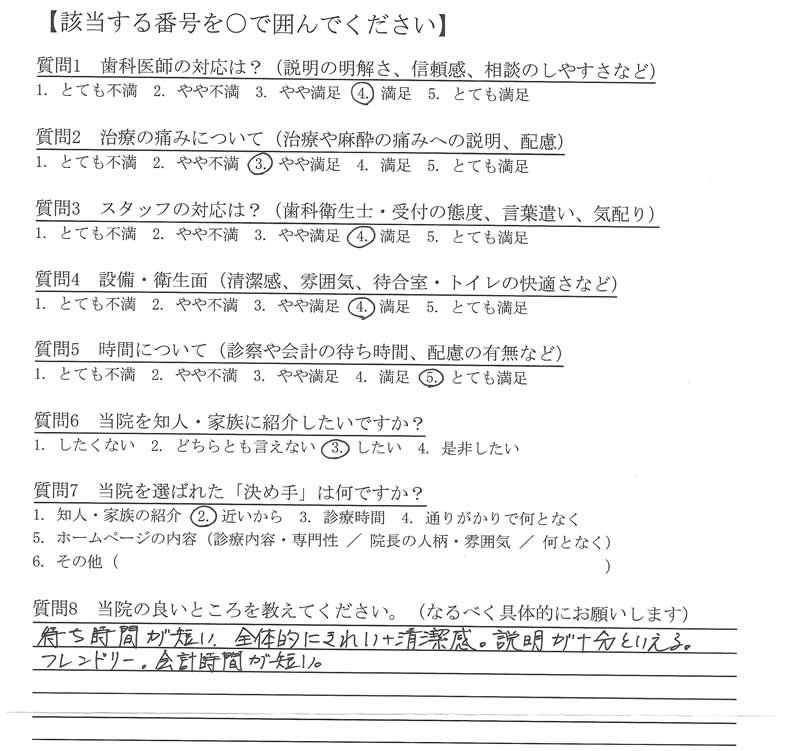 【該当する番号を〇で囲んでください】
質問1　歯科医師の対応は？（説明の明解さ、信頼感、相談のしやすさなど）
1. とても不満 2. やや不満 3. やや満足 4. 満足 5. とても満足
質問2　治療の痛みについて（治療や麻酔の痛みへの説明、配慮）
1. とても不満 2. やや不満 3. やや満足 4. 満足 5. とても満足
質問3　スタッフの対応は？（歯科衛生士・受付の態度、言葉遣い、気配り）
1. とても不満 2. やや不満 3. やや満足 4. 満足 5. とても満足
質問4　設備・衛生面（清潔感、雰囲気、待合室・トイレの快適さなど）
1. とても不満 2. やや不満 3. やや満足 4. 満足 5. とても満足
質問5　時間について（診察や会計の待ち時間、配慮の有無など）
1. とても不満 2. やや不満 3. やや満足 4. 満足 5. とても満足
質問6　当院を知人・家族に紹介したいですか？
1. したくない 2. どちらとも言えない 3. したい 4. 是非したい
質問7　当院を選ばれた「決め手」は何ですか？
1. 知人・家族の紹介 2. 近いから 3. 診療時間 4. 通りがかりで何となく
5. ホームページの内容（診療内容・専門性 ／ 院長の人柄・雰囲気 ／ 何となく）
6. その他（　　　　　　　　　　）
質問8　当院の良いところを教えてください。（なるべく具体的にお願いします）
待ち時間が短い、全体的にきれい+清潔感。説明が十分といえる。
フレンドリー。会計時間が短い。